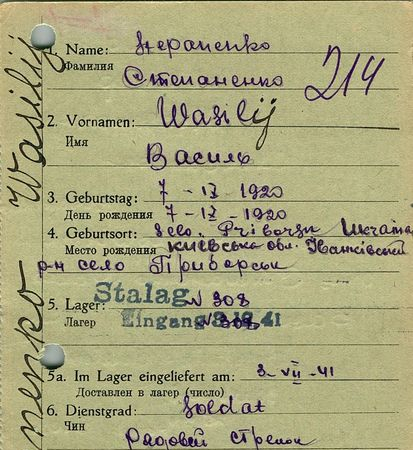 1. Name:
Фамилия
Степаненко
214
2. Vornamen: Wasilij
Имя
Василь
3. Geburtstag: 7-IX-1920
День рождения 7-IX-1920
4. Geburtsort: Selo. Ukraina
Место рождения Киевсько обл. Іванківский
р-н село Приборськ
5. Lager: Stalag N 308
Лагер Eingang 3.12.41
5a. Im Lager eingeliefert am: 3-VII-41
Доставлен в лагер (число)
6. Dienstgrad: Soldat
Чин
Рядовой стрелок
nenko Wasilij